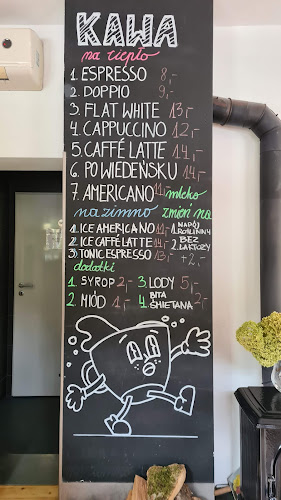 KAWA
na ciepło
1. ESPRESSO 8,-
2. DOPPIO 9,-
3. FLAT WHITE 13,-
4. CAPPUCCINO 12,-
5. CAFFÉ LATTE 14,-
6. PO WIEDEŃSKU 14,-
7. AMERICANO 11,-
mleko
zmień na
1. NAPÓJ ROŚLINNY
2. BEZ LAKTOZY
+2,-
na zimno
1. ICE AMERICANO 11,-
2. ICE CAFFÉ LATTE 14,-
3. TONIC ESPRESSO 13,-
dodatki
1 SYROP 2,-
2 MIÓD 1,-
3 LODY 5,-
4. BITA ŚMIETANA 2,-